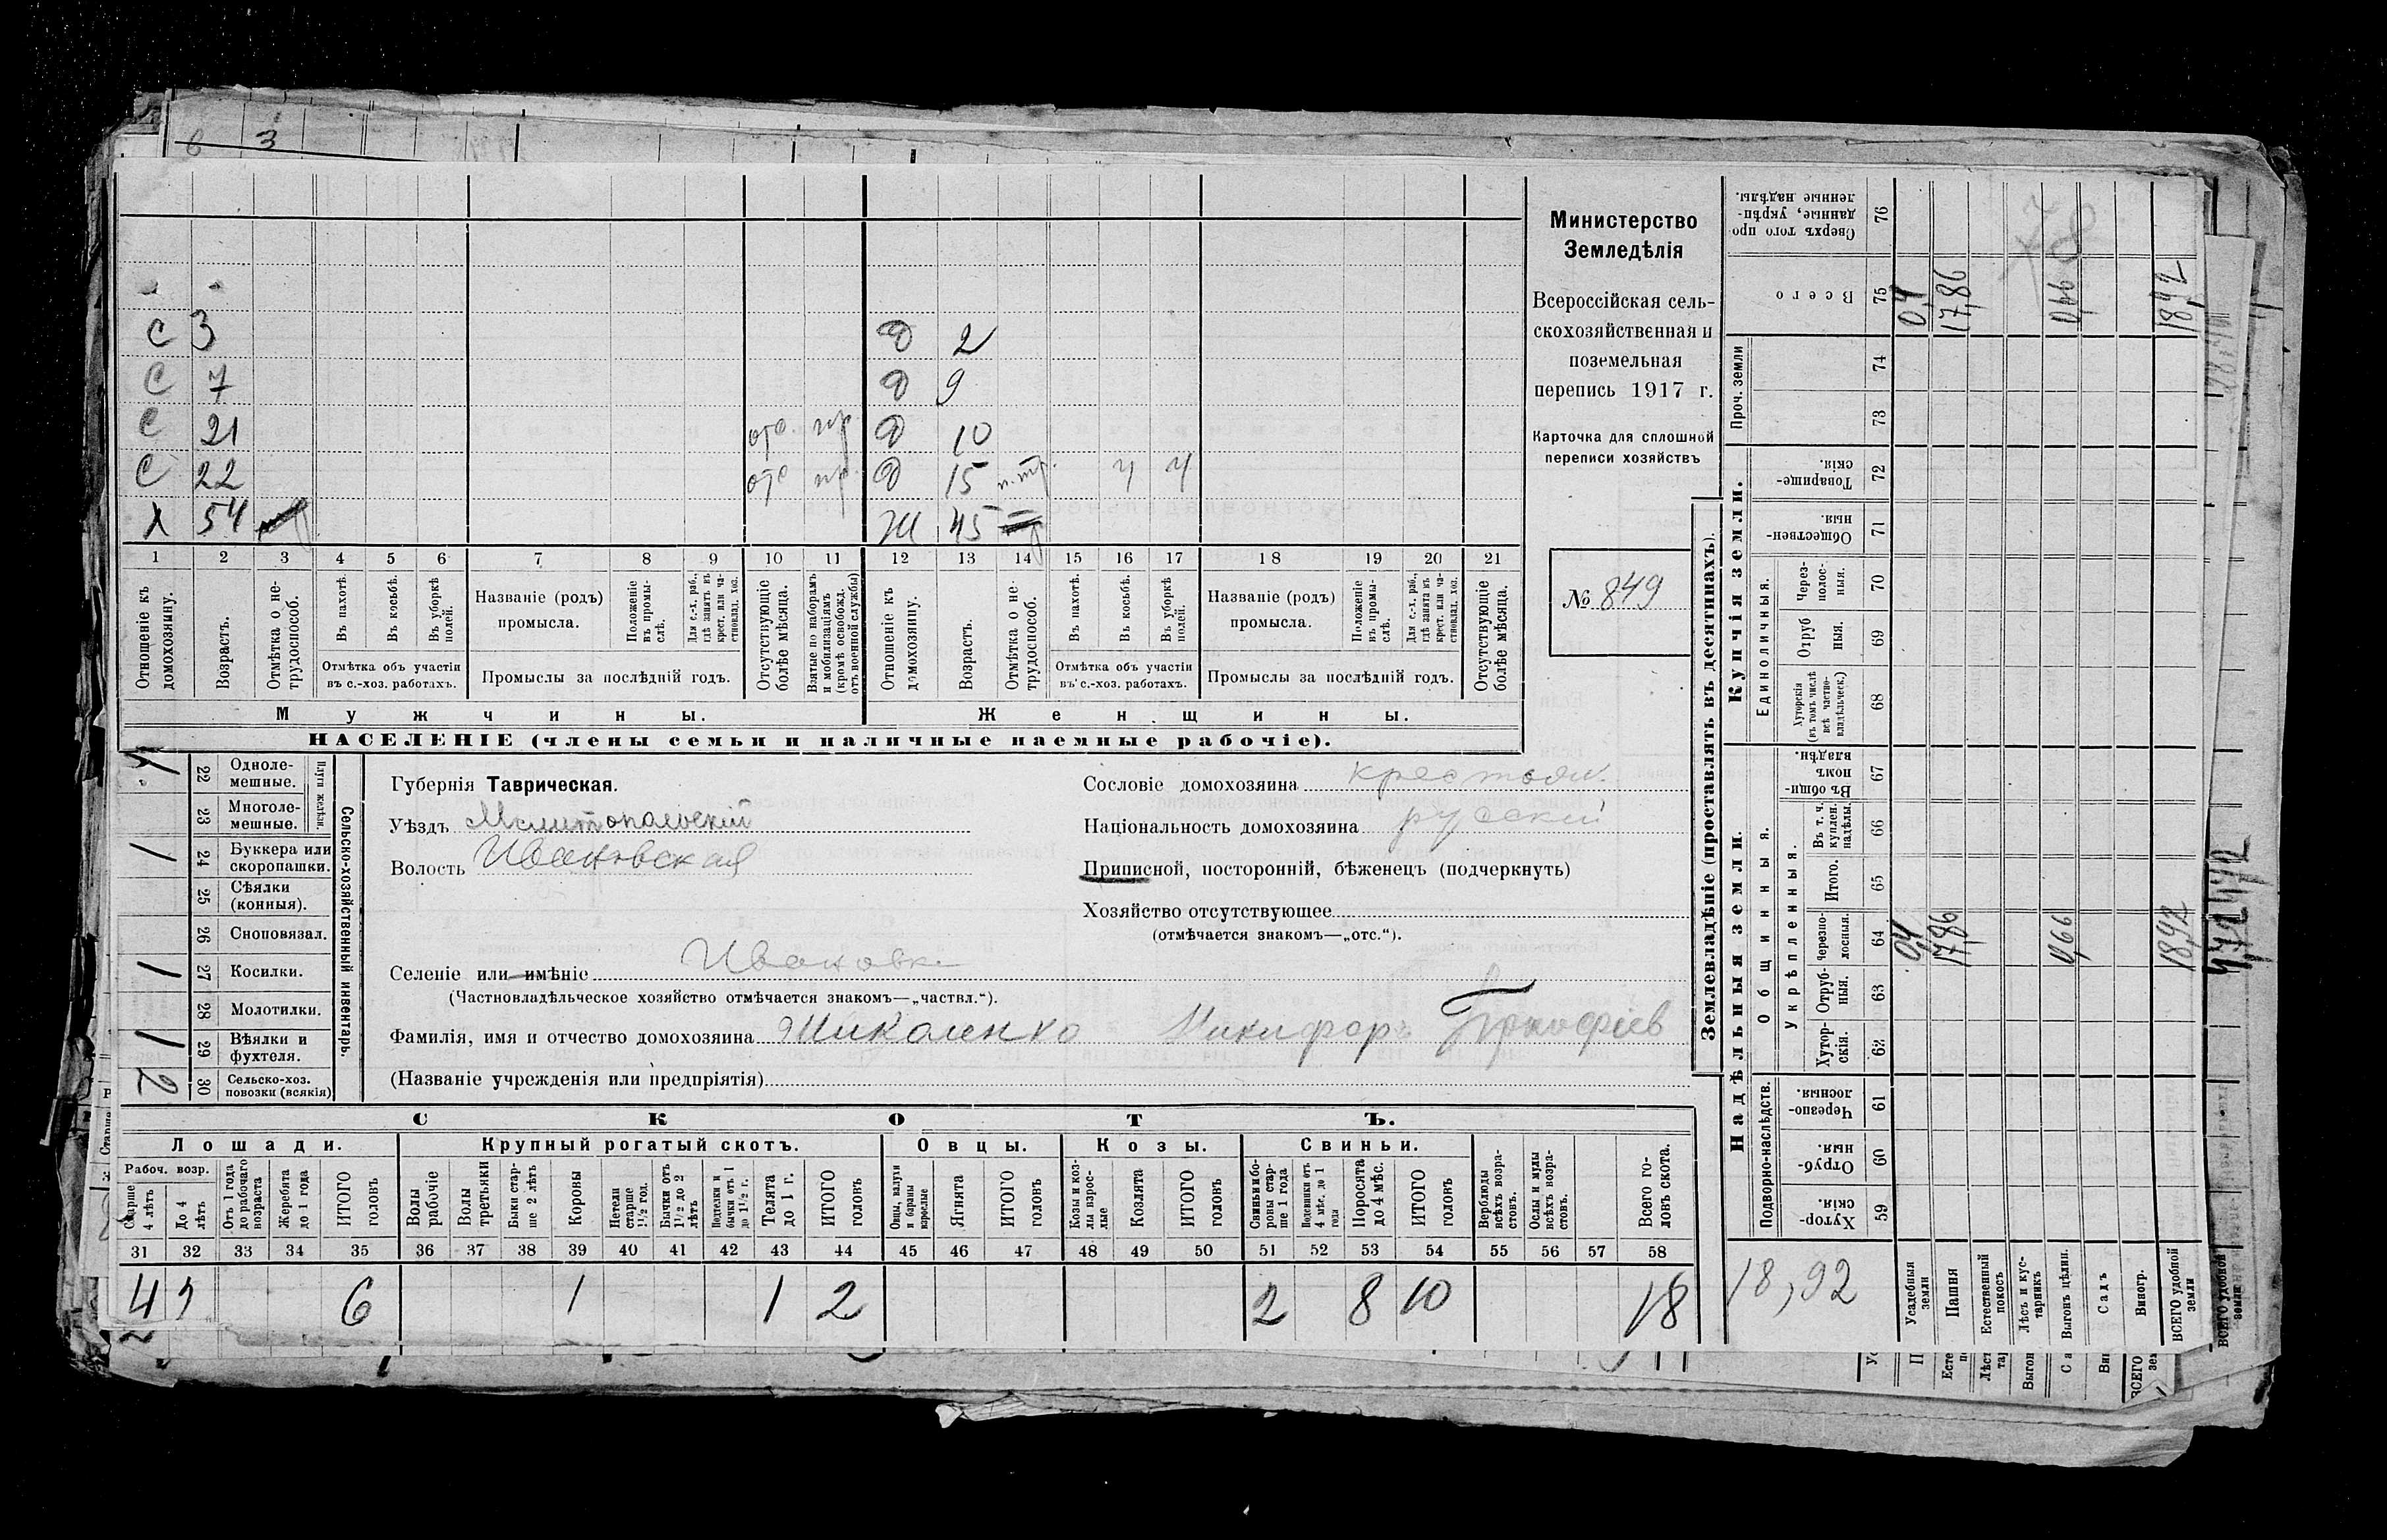 6 3
С 3 Д 2
С 7 Д 9
С 21 отс. пр Д 10
С 22 отс пр. Д 15 п. тр. ч ч
Х 54 Ж 45
1 2 3 4 5 6 7 8 9 10 11 12 13 14 15 16 17 18 19 20 21
Отношеніе къ домохозяину.
Возрастъ.
Отмѣтка о не-трудоспособ.
Въ пахотѣ.
Въ косьбѣ.
Въ уборкѣ полей.
Отмѣтка объ участіи
въ с.-хоз. работахъ.
Названіе (родъ)
промысла.
Положеніе въ промы-слѣ.
Для с.-х. раб., гдѣ занятъ въ крест. или ча-стновлад. хоз.
Промыслы за послѣдній годъ.
Отсутствующіе болѣе мѣсяца.
Взятые по наборамъ и мобилизаціямъ (кромѣ освобожд. отъ военной службы)
Отношеніе къ домохозяину.
Возрастъ.
Отмѣтка о не-трудоспособ.
Въ пахотѣ.
Въ косьбѣ.
Въ уборкѣ полей.
Отмѣтка объ участіи
въ с.-хоз. работахъ.
Названіе (родъ)
промысла.
Положеніе въ промы-слѣ.
Для с.-х. раб., гдѣ занята въ крест. или ча-стновлад. хоз.
Промыслы за послѣдній годъ.
Отсутствующіе болѣе мѣсяца.
Мужчины. Женщины.
НАСЕЛЕНІЕ (члены семьи и наличные наемные рабочіе).
Министерство
Земледѣлія
Всероссійская сель-
скохозяйственная и
поземельная
перепись 1917 г.
Карточка для сплошной
переписи хозяйствъ
№ 849
Сельско-хозяйственный инвентарь.
Плуги желѣзн.
22 Одноле-мешные.
23 Многоле-мешные.
1 24 Буккера или скоропашки.
25 Сѣялки (конныя).
26 Сноповязал.
1 27 Косилки.
28 Молотилки.
1 29 Вѣялки и фухтеля.
2 30 Сельско-хоз. повозки (всякія)
Губернія Таврическая.
Уѣздъ Мелитопольскій
Волость Ивановская
Селеніе или имѣніе Ивановка
(Частновладѣльческое хозяйство отмѣчается знакомъ—„частвл.“).
Сословіе домохозяина крестьян.
Національность домохозяина русскій
Приписной, посторонній, бѣженецъ (подчеркнуть)
Хозяйство отсутствующее
(отмѣчается знакомъ—„отс.“).
Фамилія, имя и отчество домохозяина Николенко Никифоръ Прокофіев
(Названіе учрежденія или предпріятія)
СКОТЪ.
Лошади. Крупный рогатый скотъ. Овцы. Козы. Свиньи.
Рабоч. возр.
Старше 4 лѣтъ
До 4 лѣтъ
Отъ 1 года до рабочаго возраста
Жеребята до 1 года
ИТОГО головъ
Волы рабочіе
Волы третьяки
Быки стар-ше 2 лѣтъ
Коровы
Нетели старше 1½ год.
Бычки отъ 1½ до 2 лѣтъ
Подтелки и бычки отъ 1 до 1½ г.
Телята до 1 г.
ИТОГО головъ
Овцы, валухи и бараны взрослые
Ягнята
ИТОГО головъ
Козы и коз-лы взрос-лые
Козлята
ИТОГО головъ
Свиньи и бо-ровы стар-ше 1 года
Подсвинки отъ 4 мѣс. до 1 года
Поросята до 4 мѣс.
ИТОГО головъ
Верблюды всѣхъ возра-стовъ.
Ослы и мулы всѣхъ возра-стовъ.
Всего го-ловъ скота.
31 32 33 34 35 36 37 38 39 40 41 42 43 44 45 46 47 48 49 50 51 52 53 54 55 56 57 58
4 6 1 1 2 2 8 10 18
Землевладѣніе (проставлять въ десятинахъ).
Купчія земли.
Надѣльныя земли.
Сверхъ того про-данные, укрѣп-ленные надѣлы. 76
Всего 75 0,4 17,86 0,66 18,92
Проч. земли 74 73
Товарище-скія. 72
Обществен-ныя. 71
Единоличныя.
Через-полос-ныя. 70
Отруб-ныя. 69
Хуторскія (въ томъ числѣ всѣ частно-владѣльческ.) 68
Общинныя.
Въ общи-номъ владѣн. 67
Укрѣпленныя.
Въ т. ч. куплен. надѣлы. 66
Итого. 65
Черезпо-лосныя. 64 0,4 17,86 0,66 18,92
Отруб-ныя. 63
Хутор-скія. 62
Подворно-наслѣдств.
Черезпо-лосныя. 61
Отруб-ныя. 60
Хутор-скія. 59
18,92
Усадебныя земли
Пашня
Естественный покосъ
Лѣсъ и кус-тарникъ
Выгонъ цѣлин.
Садъ
Виногр.
ВСЕГО удобной земли
ВСЕГО удобной земли